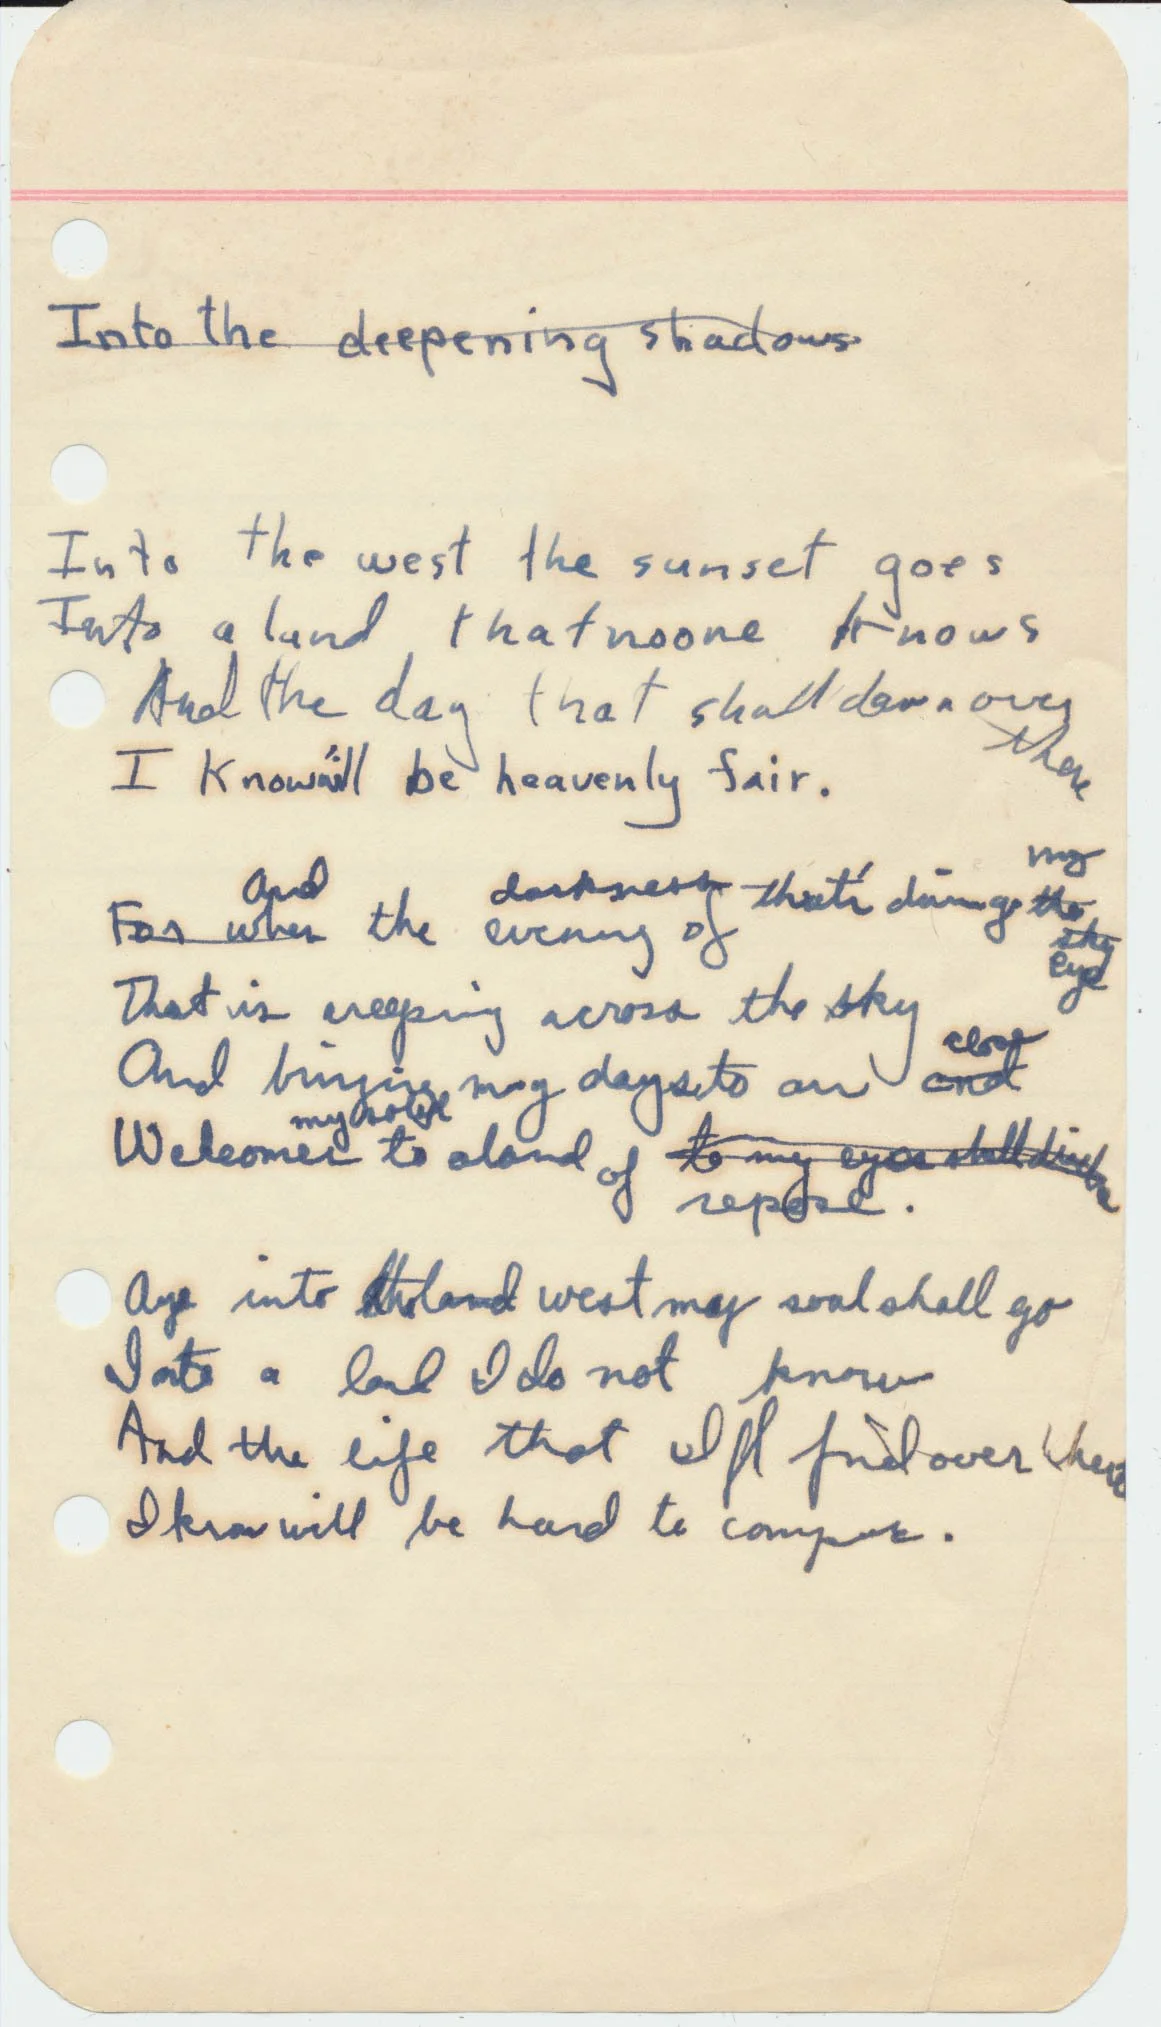 Into the deepening shadows
Into the west the sunset goes
Into a land that noone knows
And the day that shall dawn over there
I know will be heavenly fair.
And darkness that's my
For when the evening of the
sky
eye
That is creeping across the sky
close
And bringing my days to an end
my soul
Welcomes to a land of to my eyes shall
repose.
Aye into the land west my soul shall go
Into a land I do not know
And the life that I'll find over there
I know will be hard to compare.